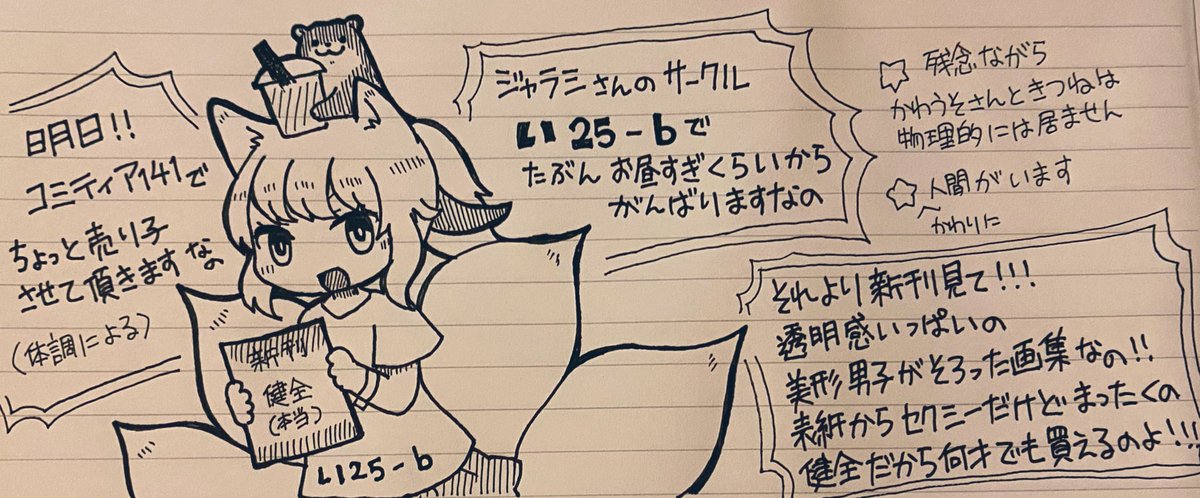 明日!!
コミティア141で
ちょっと売り子
させて頂きますなの
(体調による)
ジャラミさんのサークル
い25-bで
たぶんお昼すぎくらいから
がんばりますなの
☆残念ながら
かわうそさんときつねは
物理的には居ません
☆人間がいます
かわりに
それより新刊見て!!!
透明感いっぱいの
美形男子がそろった画集なの!!
表紙からセクシーだけどまったくの
健全だから何才でも買えるのよ!!!
新刊
健全
(本当)
い25-b